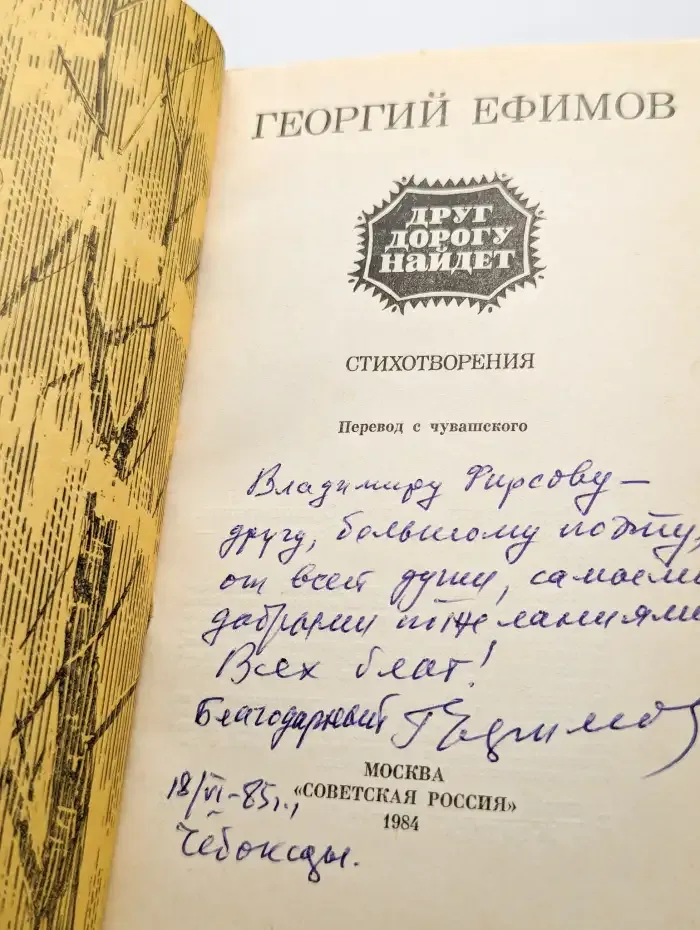 ГЕОРГИЙ ЕФИМОВ
ДРУГ
ДОРОГУ
НАЙДЕТ
СТИХОТВОРЕНИЯ
Перевод с чувашского
Владимиру Фирсову —
другу, большому поэту,
от всей души, самыми
добрыми пожеланиями
Всех благ!
Благодарный ГЕфимов
МОСКВА
«СОВЕТСКАЯ РОССИЯ»
1984
18/VI-85г.,
Чебоксары.